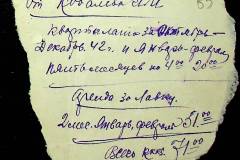 от Кобалева И.И. 69
Квартплата за октябрь-
декабрь 42 г. и январь-февраль
пять месяцев по 4 00 20 00
Аренда за лавку
2 мес. Январь, февраль 51 00
Всего 71 00